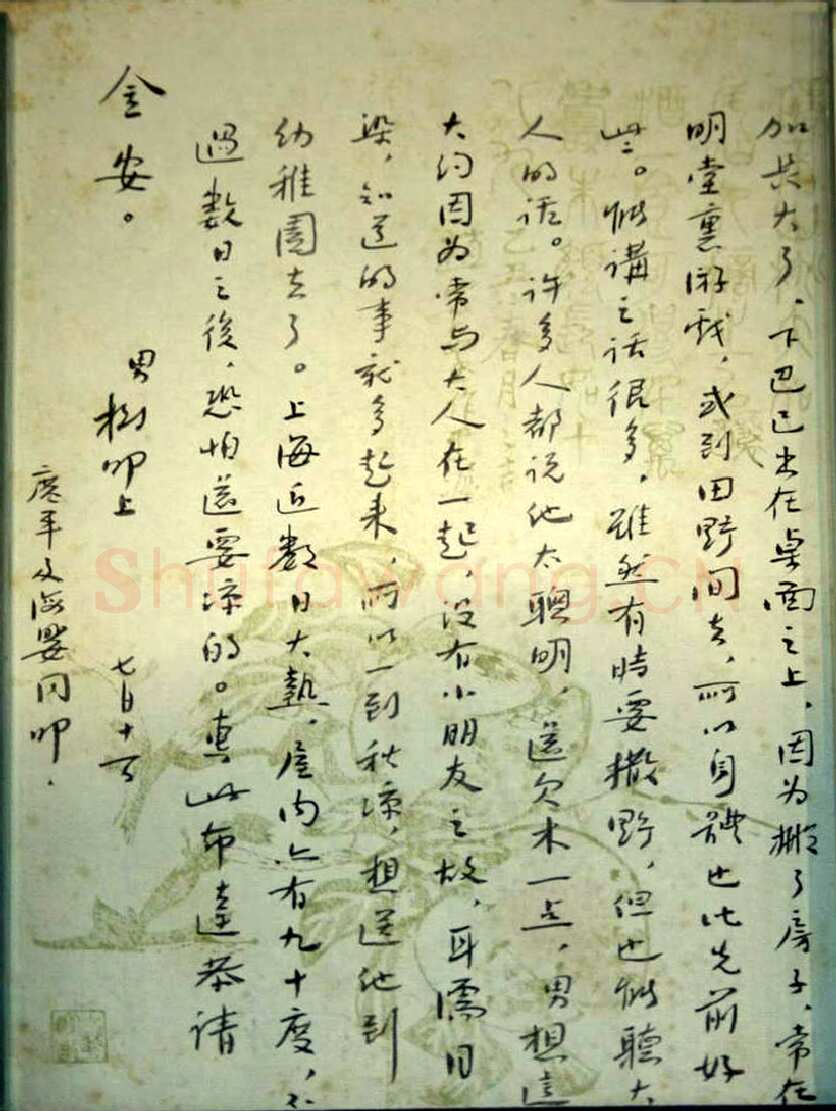 加長大了、下巴已出在桌面之上,因为搬了房子、常在
明堂裏游戏,或到田野间去,所以身體也比先前好
些。能講之话很多,雖然有時要撒野,但也能聽大
人的话。许多人都说他太聰明,還欠木一点,男想這
大约因为常与大人在一起,没有小朋友之故,耳濡目
染,知道的事就多起来,所以一到秋凉,想送他到
幼稚園去了。上海近数日大熱,屋内亦有九十度,不
過数日之後,恐怕還要凉的。專此布達恭请
金安。
男樹叩上 七月十一日
廣平及海嬰同叩.
Shufawang.CN